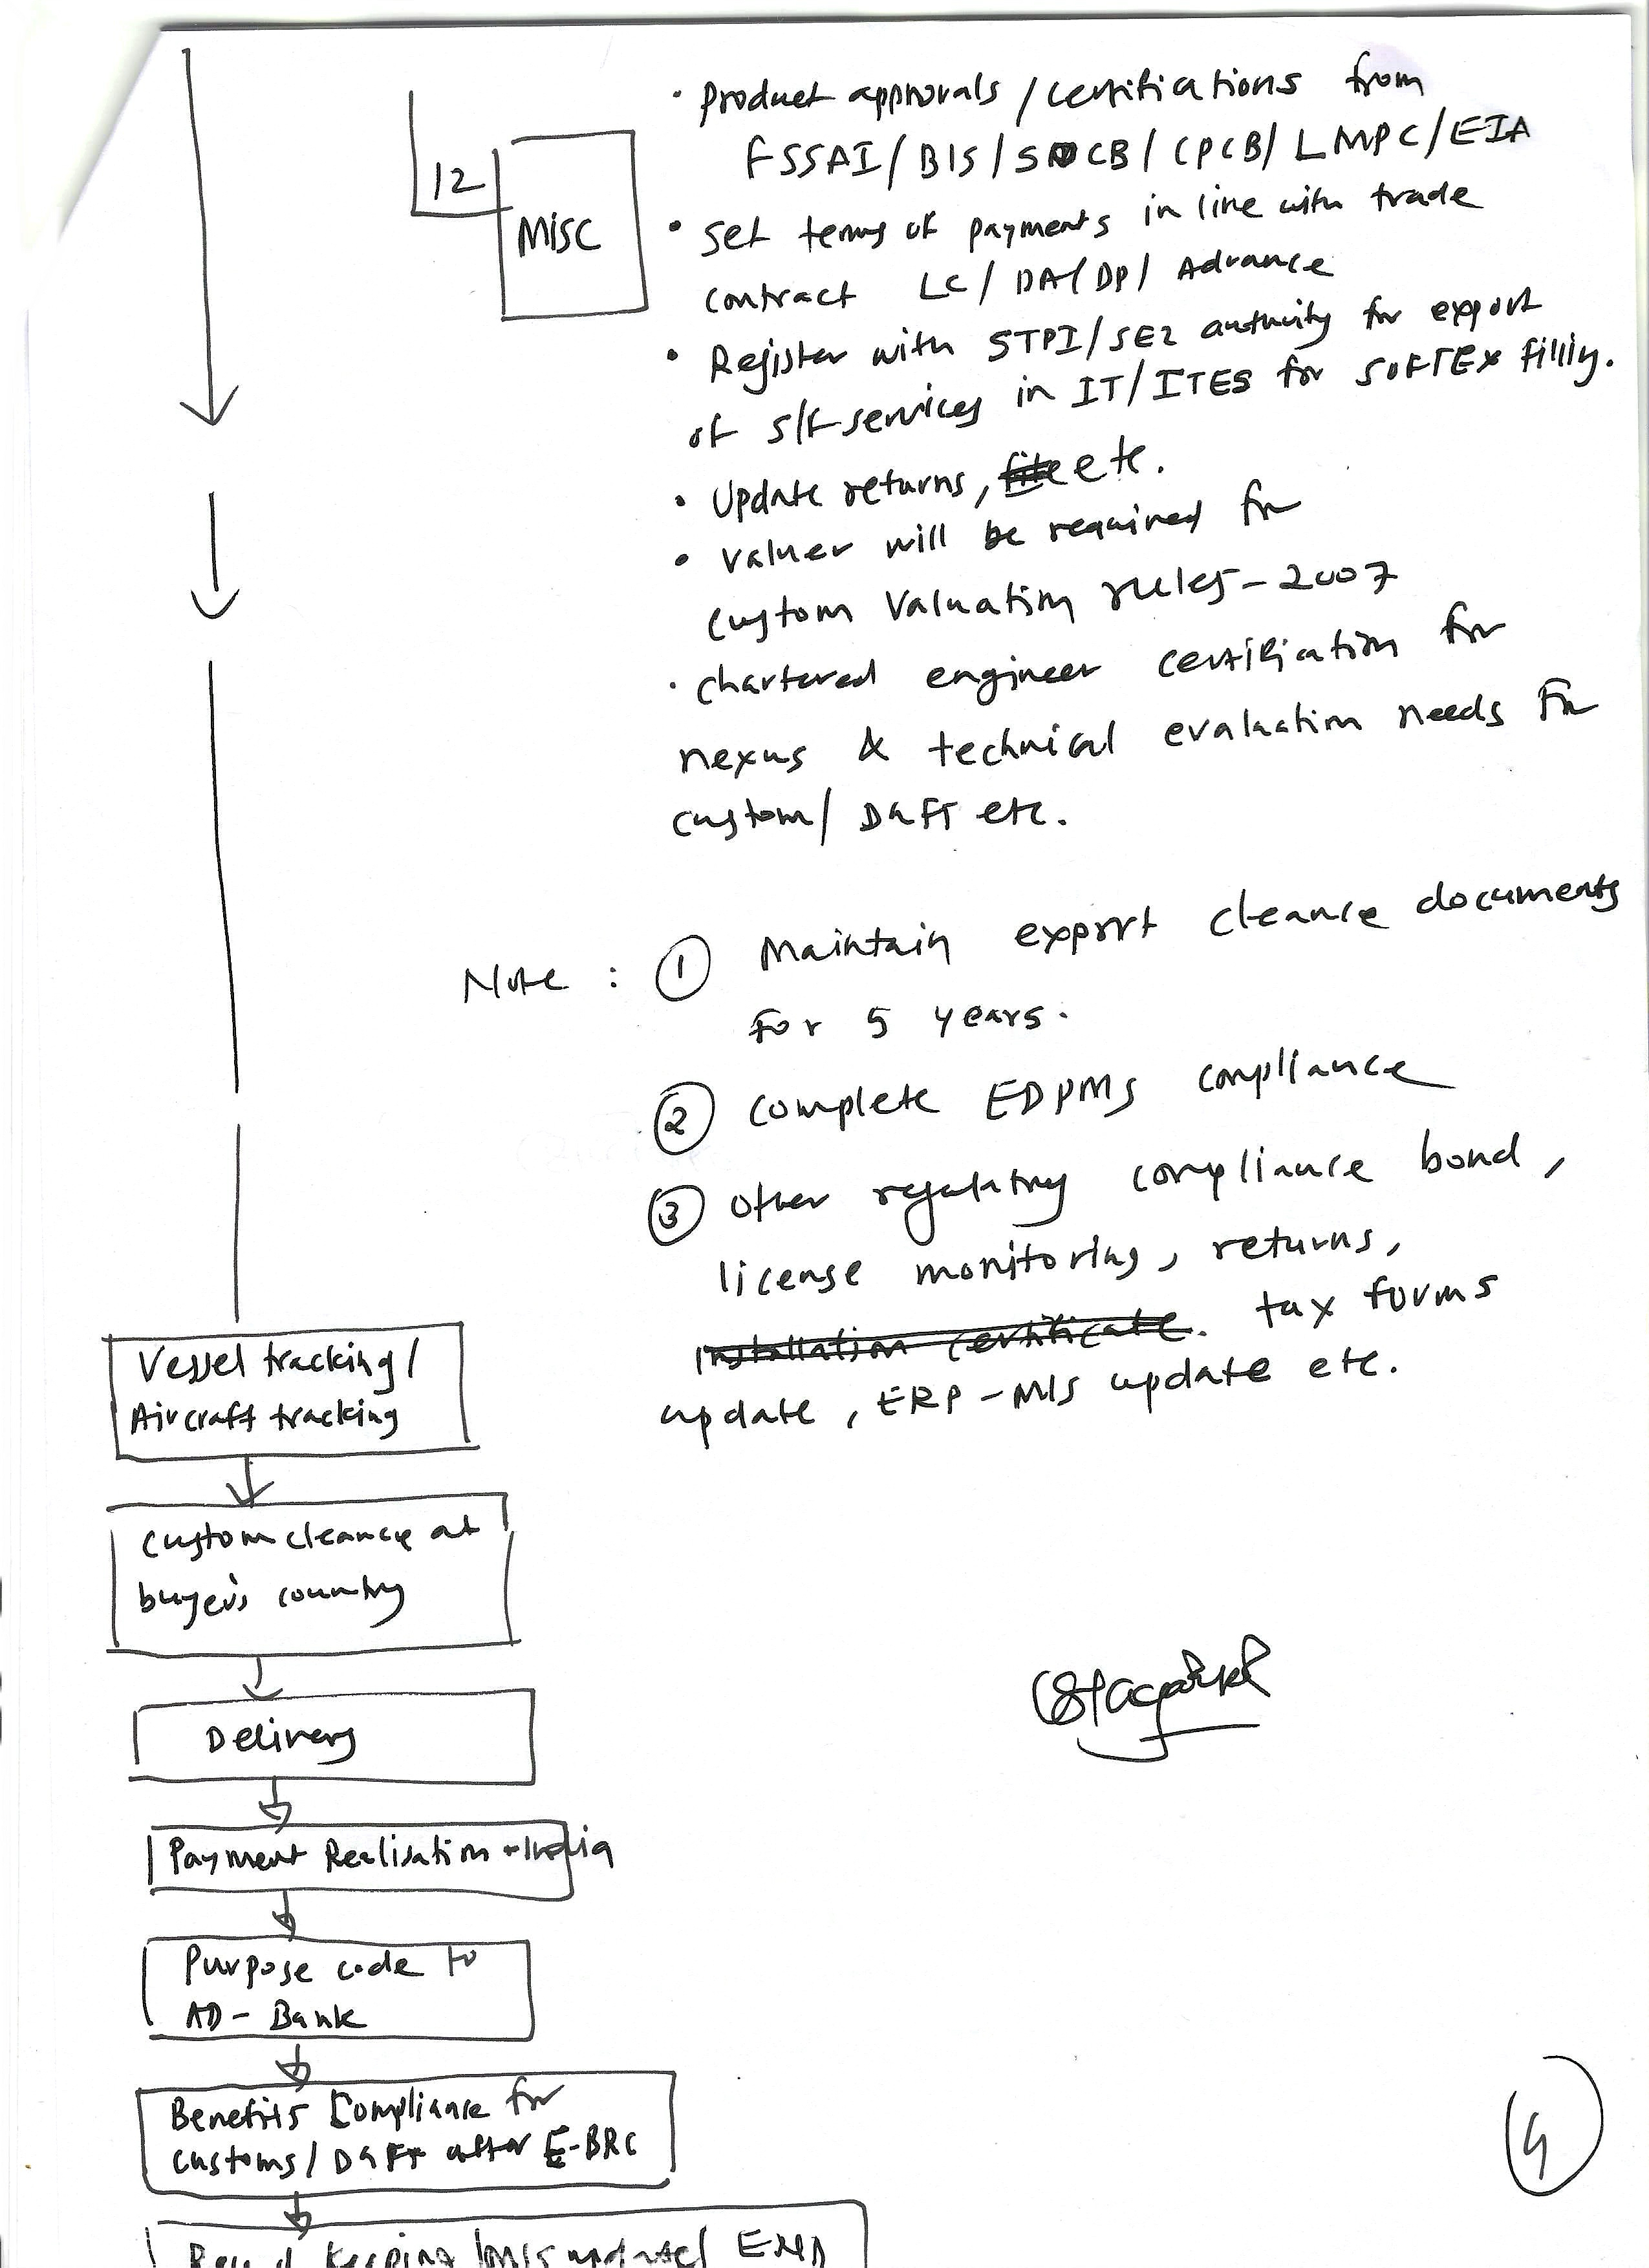 • Product approvals / certifications from
FSSAI / BIS / SPCB / CPCB / LMPC / EIA
12
MISC
• Set terms of payments in line with trade
contract LC / DA / DP / Advance
• Register with STPI / SEZ authority for export
of S/F services in IT / ITES for SOFTEX filling.
• Update returns, etc.
• Valuer will be required for
Custom Valuation rules - 2007
• Chartered engineer certification for
nexus & technical evaluation needs for
custom / DGFT etc.
Note : ① Maintain export clearance documents
For 5 years.
② Complete EDPMS compliance
③ Other regulatory compliance bond,
license monitoring, returns,
Installation certificate. tax forms
update, ERP - MIS update etc.
Vessel tracking /
Aircraft tracking
Custom clearance at
buyer's country
Delivery
Payment Realisation - India
Purpose code to
AD - Bank
Benefits Compliance for
customs / DGFT after E-BRC
Record Keeping / MIS update / END